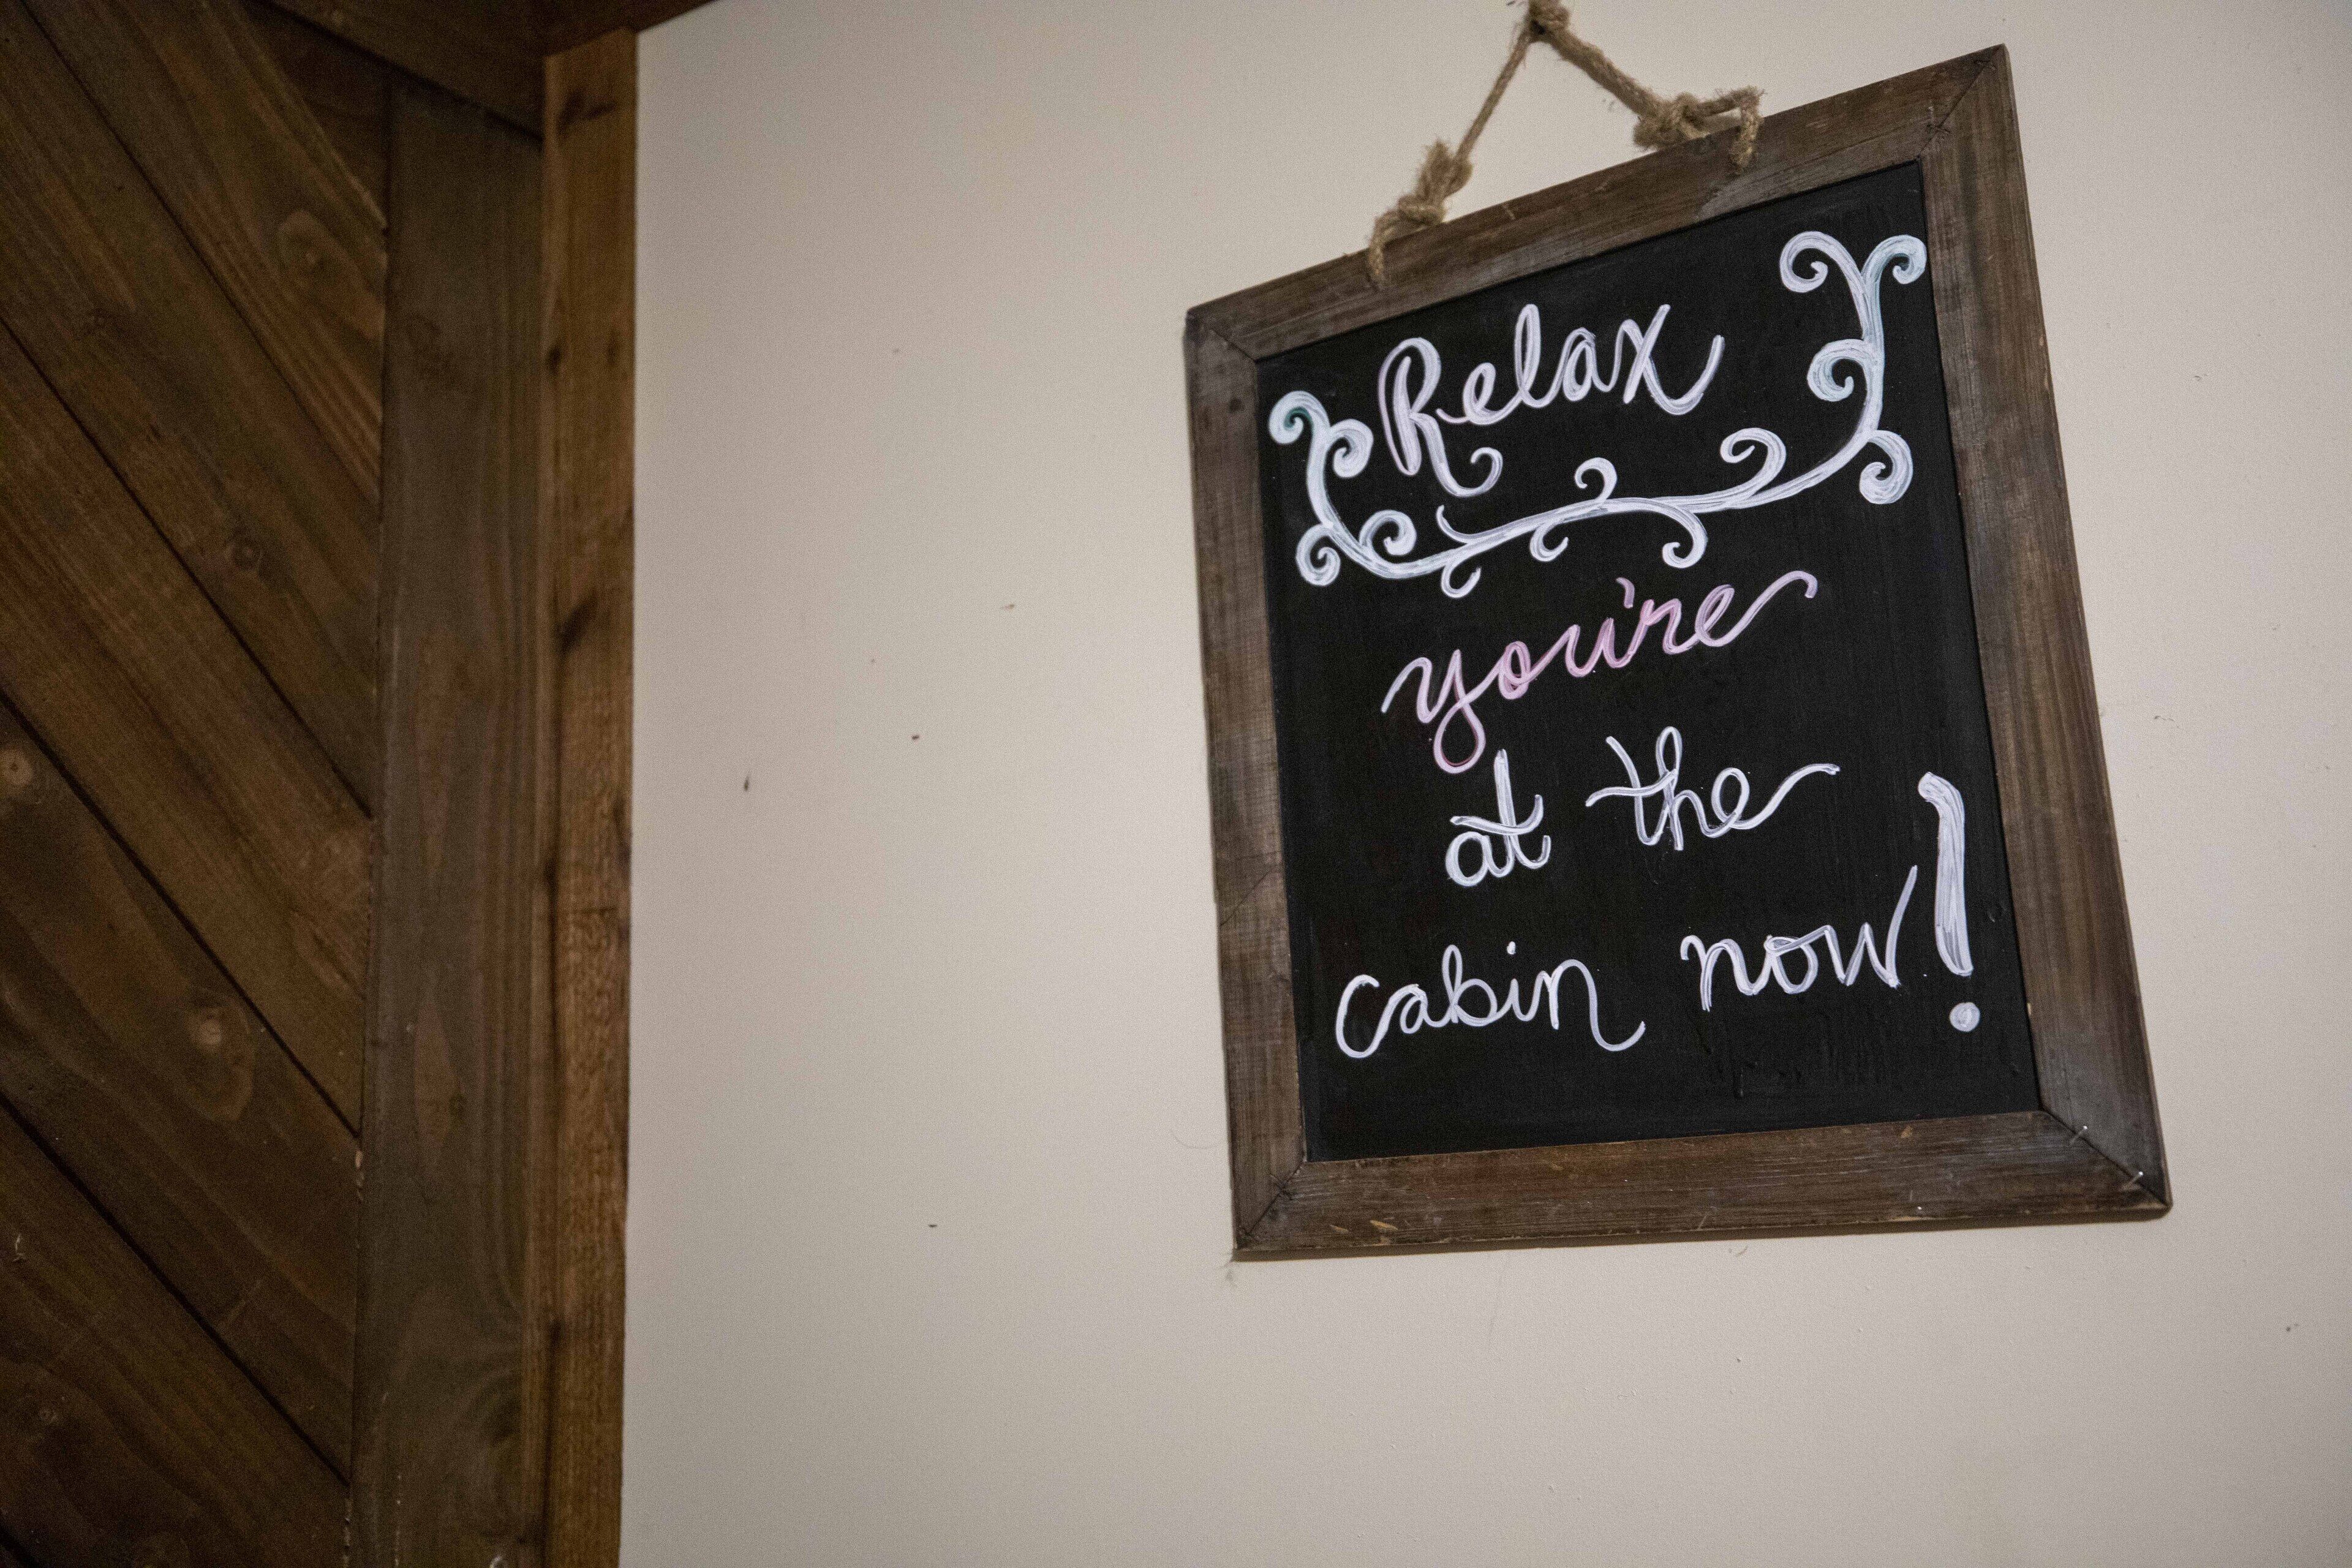 Relax
you're
at the
cabin now!